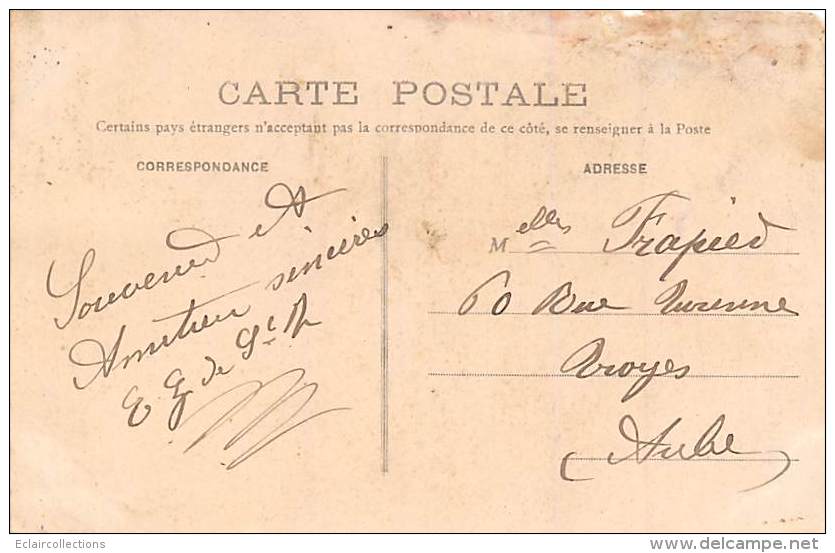 CARTE POSTALE
Certains pays étrangers n'acceptent pas la correspondance de ce côté, se renseigner à la Poste
CORRESPONDANCE
ADRESSE
Souvenir et
Amitiés sincères
E G de St M
Melles Frapied
60 Rue Turenne
Troyes
(Aube)
Eclaircollections
delcampe.net